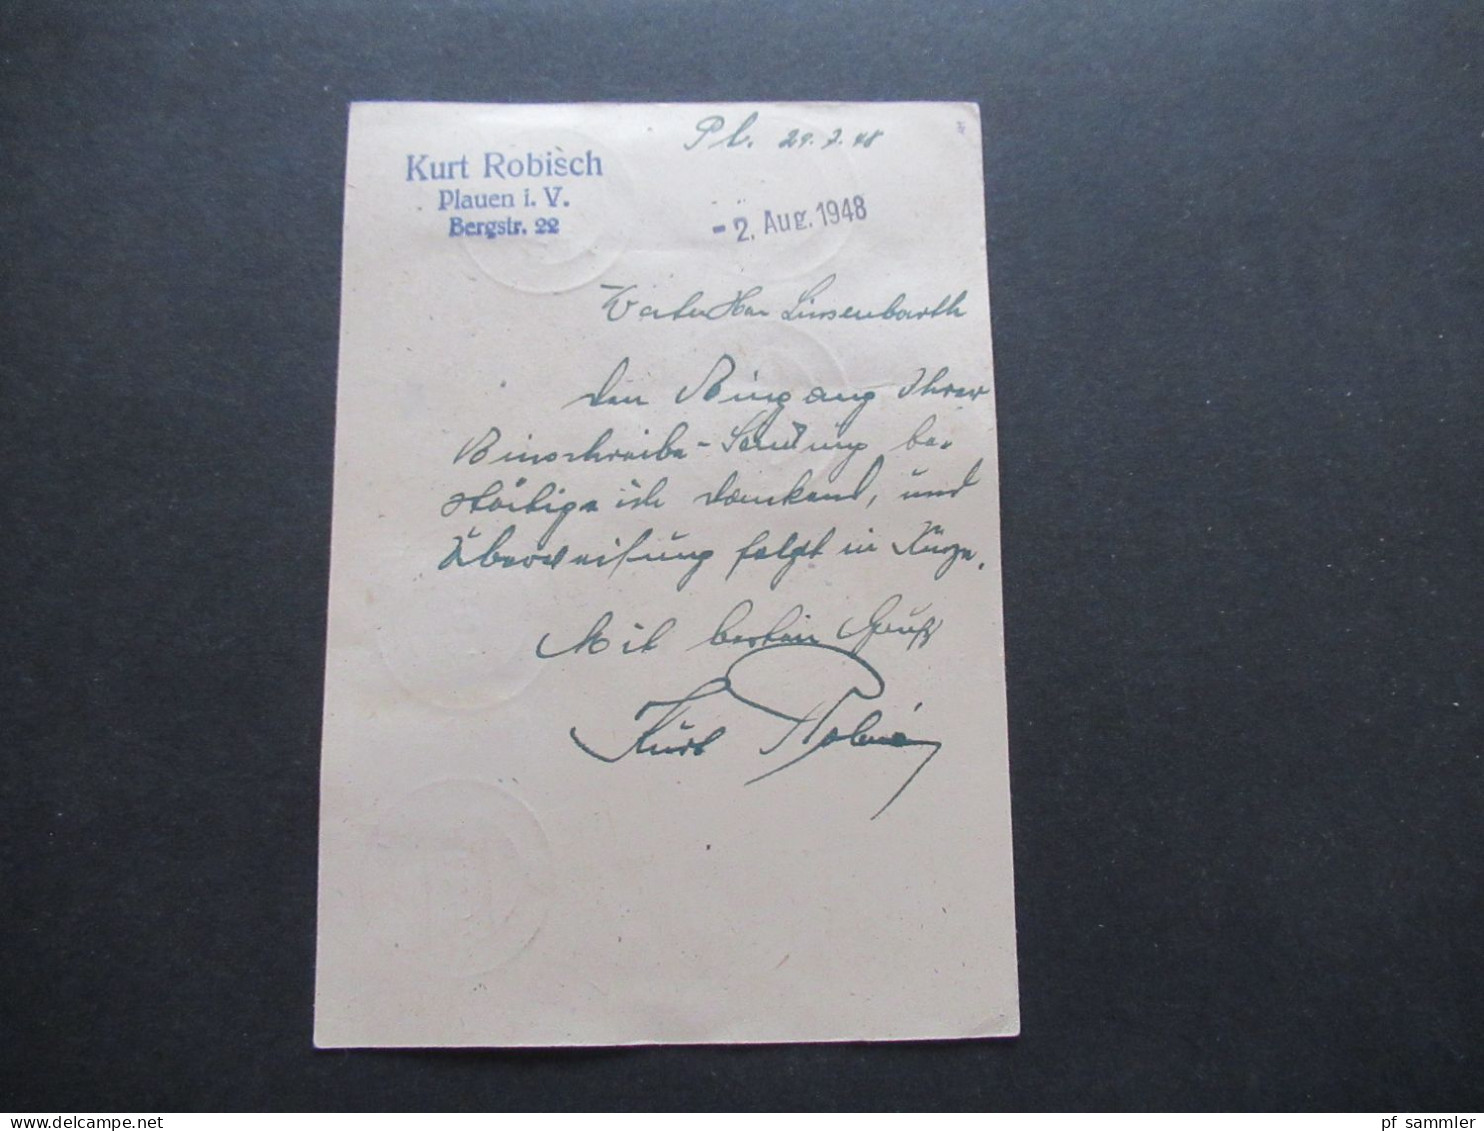 Kurt Robisch
Plauen i. V.
Bergstr. 22
Pl. 29. 7. 48
- 2. Aug. 1948
Werter Herr Linsenbarth
Den Eingang Ihrer
Einschreibe-Sendung be-
stätige ich dankend, und
Überweisung folgt in Kürze.
Mit besten Gruß
Kurt Robisch
www.delcampe.net
pf_sammler